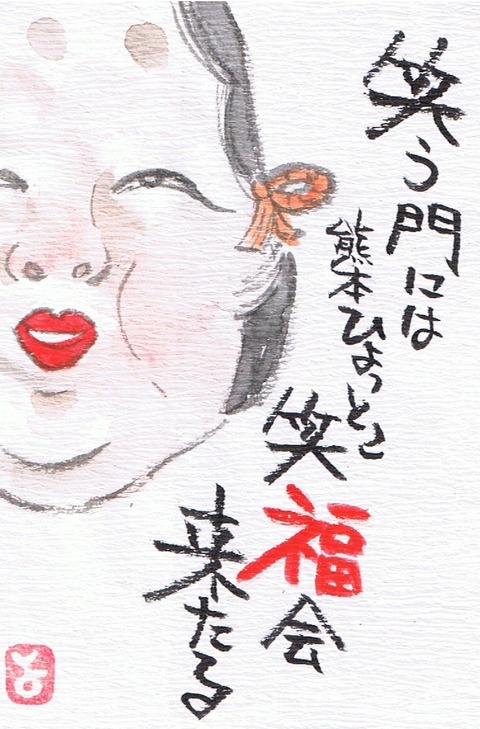 笑う門には
熊本ひょっとこ
笑福会
来たる
よ